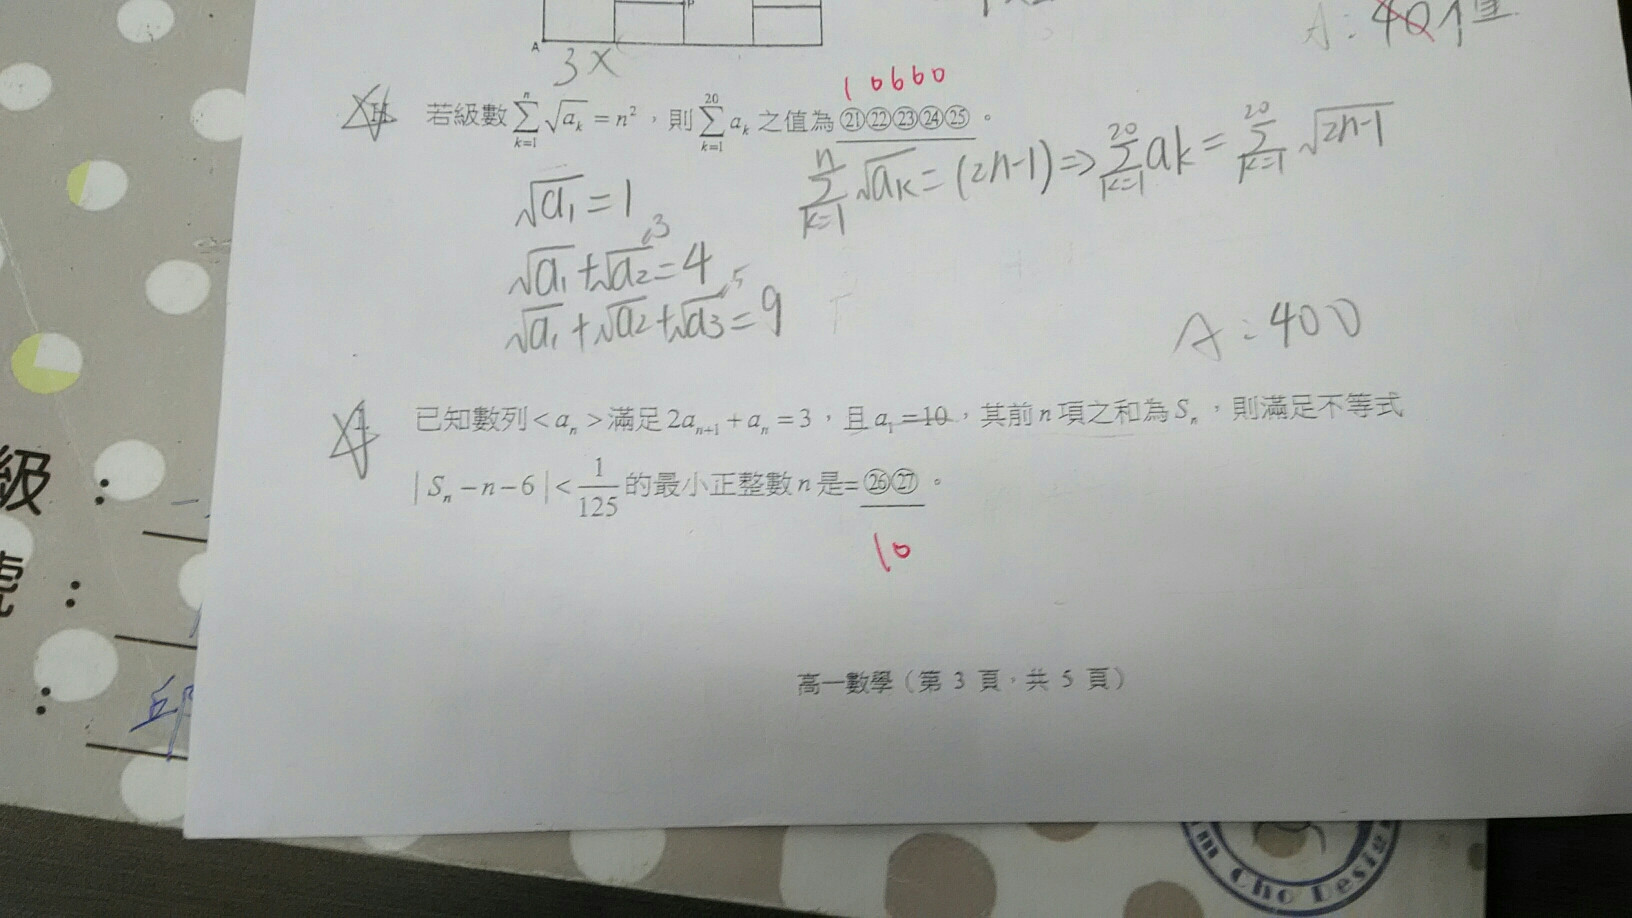 A
P
3x
A: 401
10660
11. 若級數 \sum_{k=1}^{n} \sqrt{a_k} = n^2，則 \sum_{k=1}^{20} a_k 之值為㉑㉒㉓㉔㉕。
\sqrt{a_1} = 1
\sum_{k=1}^{n} \sqrt{a_k} = (2n-1) ⇒ \sum_{k=1}^{20} a_k = \sum_{k=1}^{20} \sqrt{2n-1}
3
\sqrt{a_1} + \sqrt{a_2} = 4
5
\sqrt{a_1} + \sqrt{a_2} + \sqrt{a_3} = 9
A: 400
已知數列 < a_n > 滿足 2a_{n+1} + a_n = 3，且 a_1 = 10，其前 n 項之和為 S_n，則滿足不等式
| S_n − n − 6 | < \frac{1}{125} 的最小正整數 n 是=㉖㉗。
10
高一數學（第 3 頁，共 5 頁）
級：
號：
：
邱
Cho Design